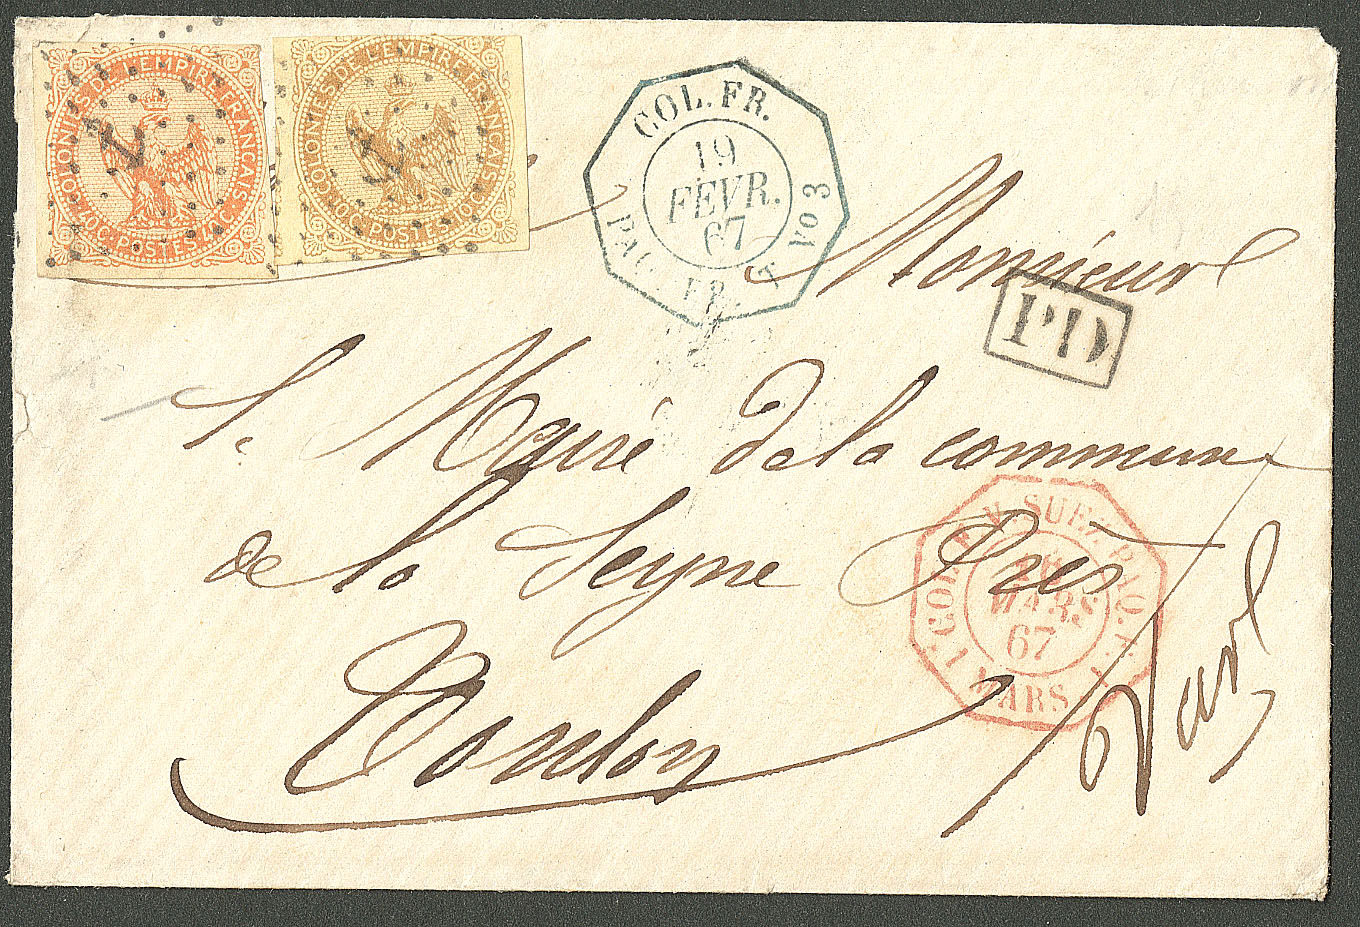 COLONIES DE L'EMPIRE FRANÇAIS
40C. POSTES. 40C.
COLONIES DE L'EMPIRE FRANÇAIS
10C. POSTES. 10C.
COL. FR.
19
FEVR.
67
PAQ. FR. X Vo 3
Monsieur
PD
Le Maire de la commune
de la Seyne Près
Toulon
Var
COL. FR. V. SUEZ PAQ. F.
MARS
67
MARS